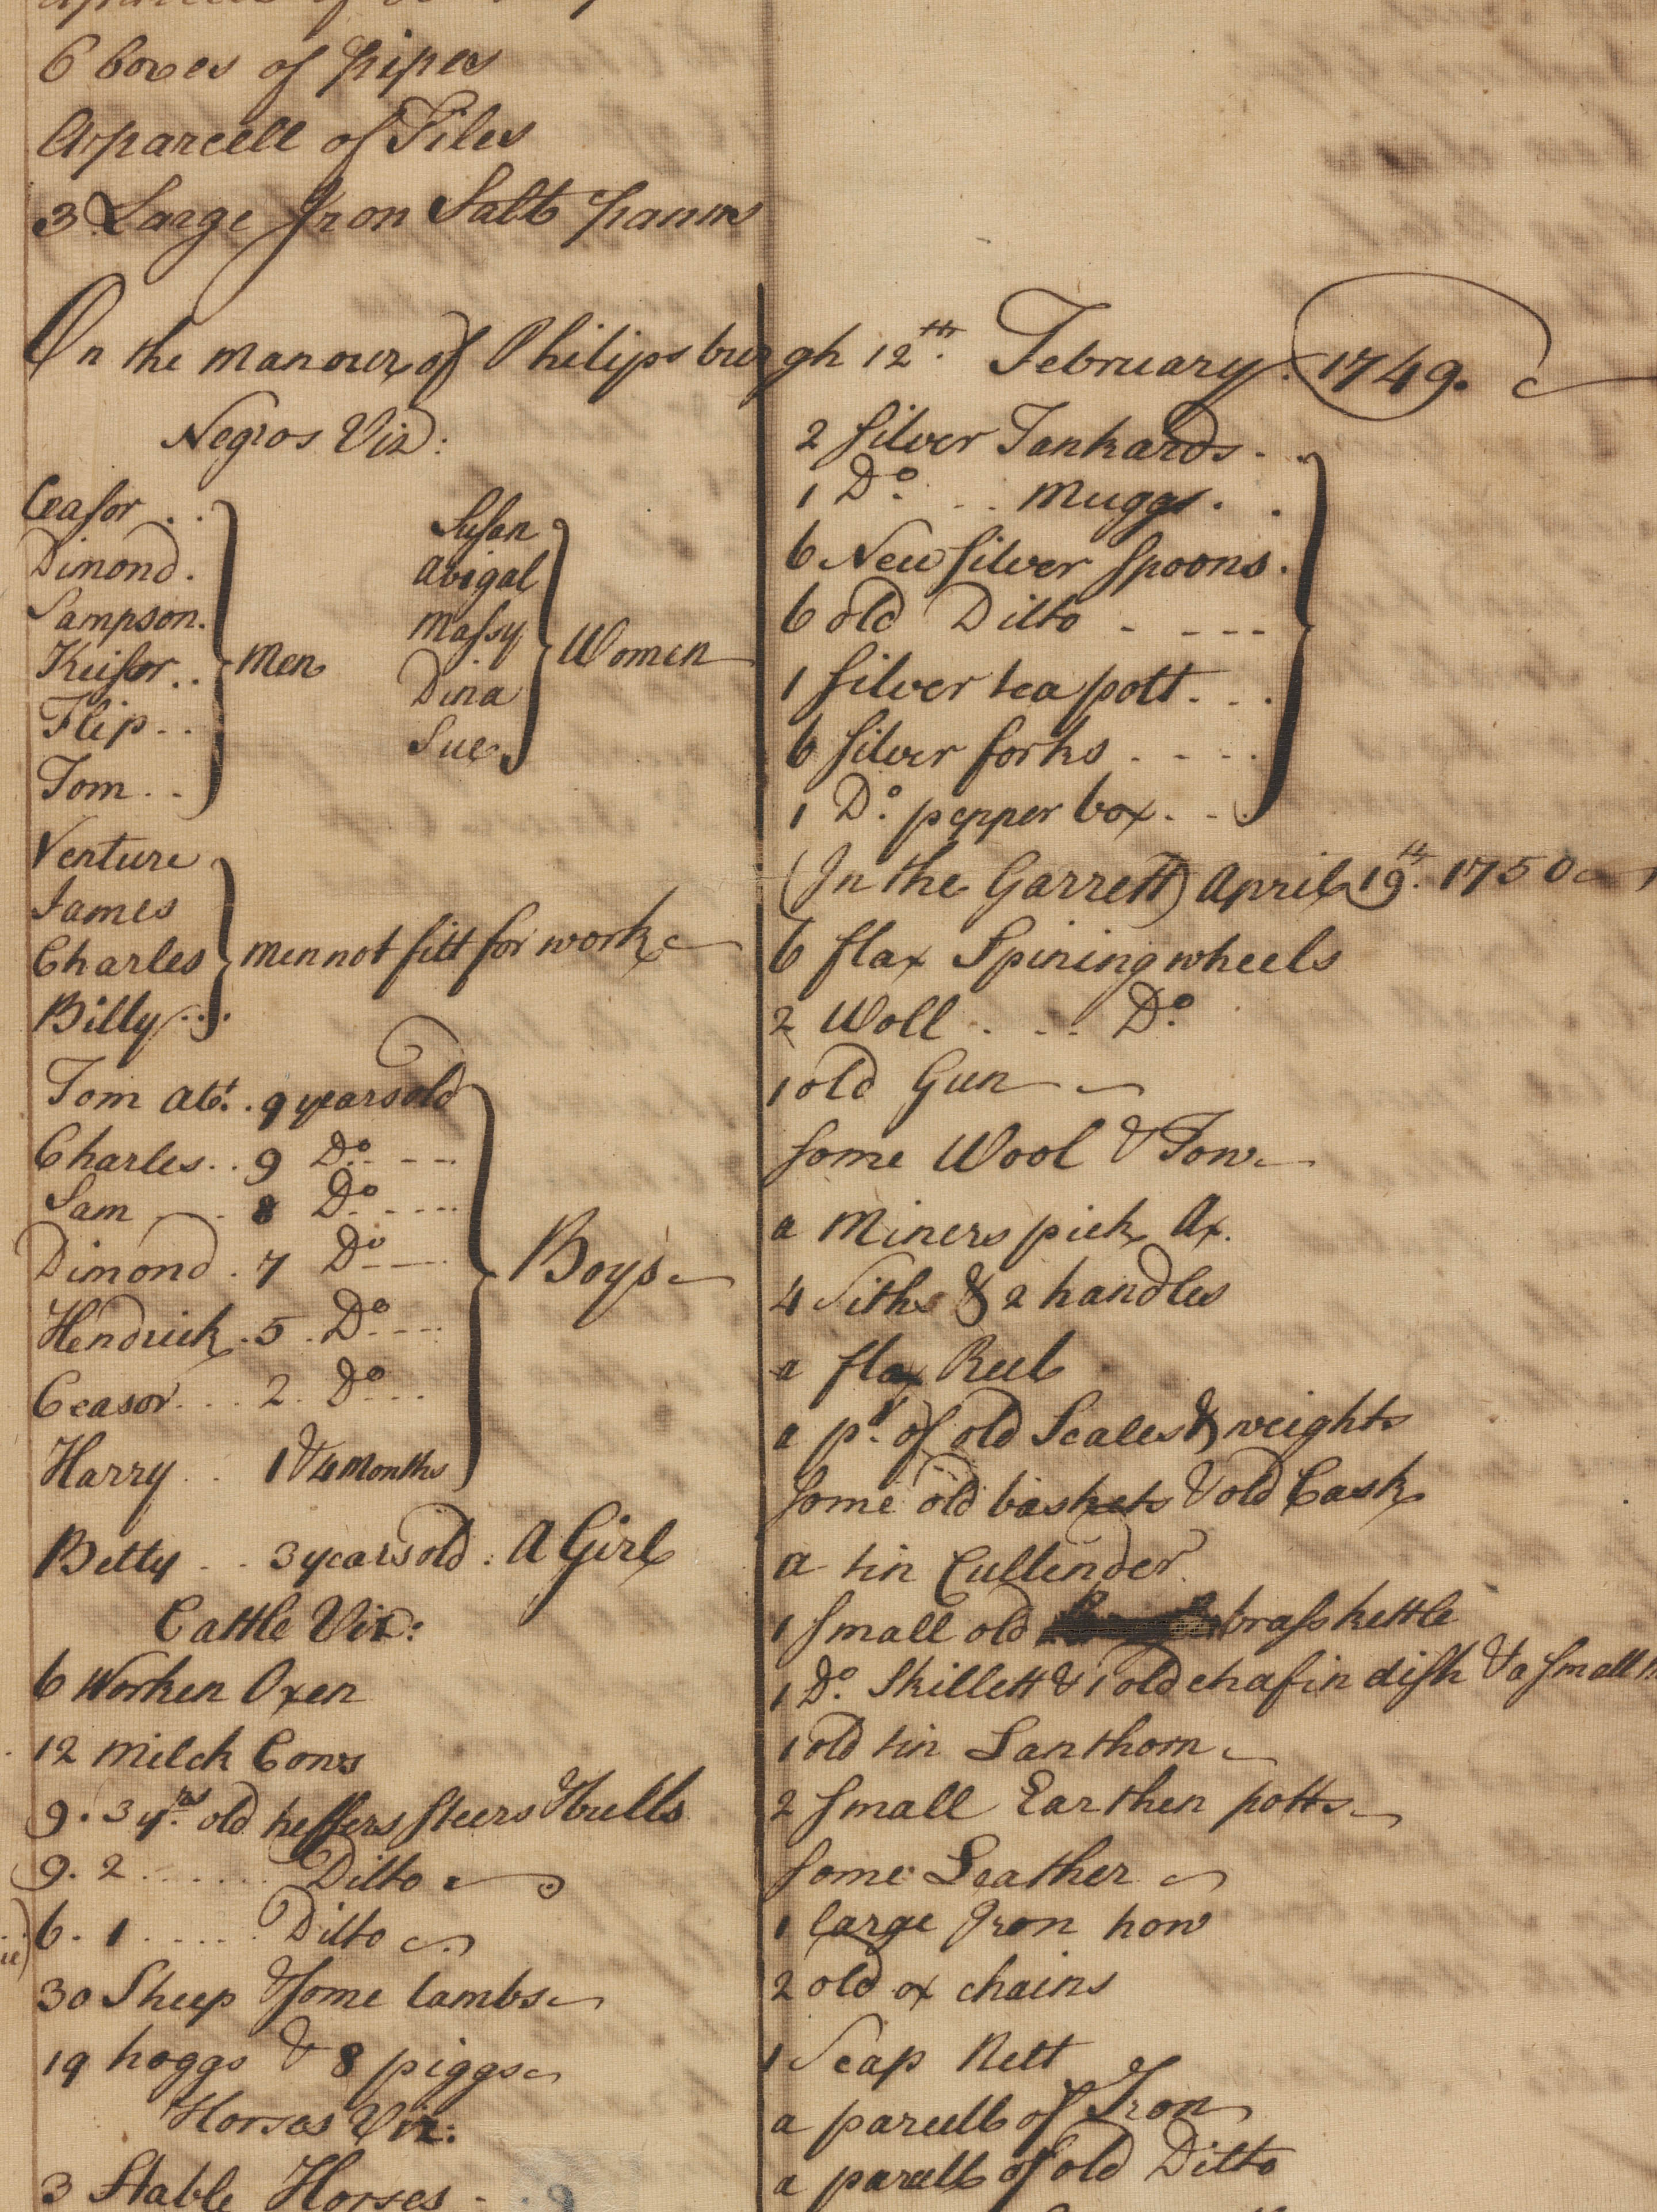 6 boxes of pipes
A parcell of Files
3 Large Iron Salt panns
On the manour of Philipsburgh 12th. February. 1749.
Negros Viz:
Ceasor . .
Dimond .
Sampson.
Keisor . .
Flip . .
Tom . .
Men
Susan
Abigal
Massy
Dina
Sue
Women
Venture
James
Charles
Billy . . .
men not fitt for work
Tom abt. . 9 years old
Charles . . 9 Do. - -
Sam - . 8 Do. - - -
Dimond . 7 Do - -
Hendrick . 5 . Do - - -
Ceasor . . . 2 . Do - - -
Harry . . 1 & 4 Months
Boys
Betty . . 3 years old : A Girl
Cattle Viz:
6 Worken Oxen
12 milch Cows
9 . 3 yrs. old heffers steers & bulls
9 . 2 . . . . . . Ditto
6 . 1 . . . . . Ditto
30 Sheep & some lambs
19 hoggs & 8 piggs
Horses Viz:
3 Stable Horses -
2 silver Tankards - .
1 Do. . . muggs . .
6 New silver spoons .
6 old Ditto - - - -
1 silver tea pott . . .
6 silver forks . - - .
1 Do. pepper box . .
(In the Garrett) April 19th. 1750
6 flax Spining wheels
2 Woll . . . Do.
1 old Gun
some Wool & Tow
a Miners pick Ax.
4 Siths & 2 handles
a flax Reel
a pr. of old Scales & weights
some old baskets & old Cask
a tin Cullender
1 small old brass kettle
1 Do. Skillett & 1 old chafin dish & a small
1 old tin Lanthorn
2 small Earthen potts
some Leather
1 large Iron how
2 old ox chains
1 Scap Nett
a parcell of Iron
a parcell of old Ditto